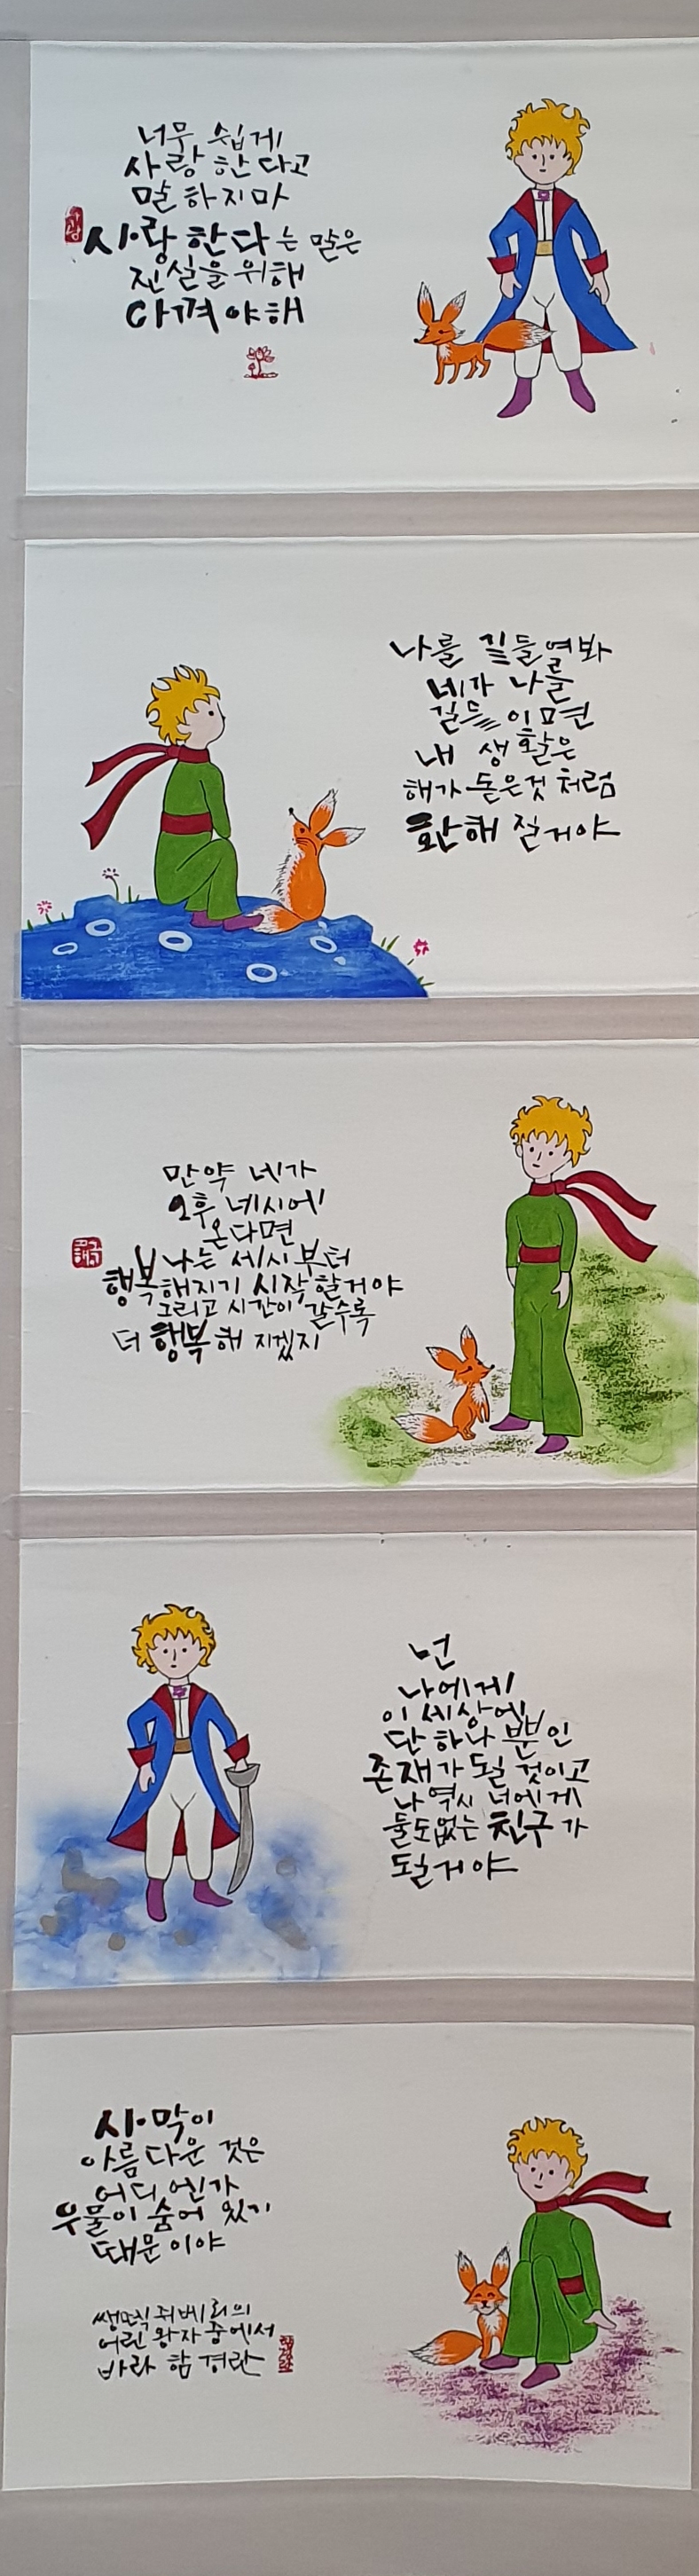 너무 쉽게
사랑한다고
말하지마
사랑한다는 말은
진실을 위해
아껴야해
나를 길들여봐
네가 나를
길들이면
내 생활은
해가 돋은것 처럼
환해 질거야
만약 네가
오후 네시에
온다면
나는 세시부터
행복해지기 시작할거야
그리고 시간이 갈수록
더 행복해 지겠지
넌
나에게
이 세상에
단 하나 뿐인
존재가 될 것이고
나 역시 너에게
둘도없는 친구가
될거야
사막이
아름다운 것은
어디엔가
우물이 숨어 있기
때문이야
쌩떽쥐베리의
어린왕자 중에서
바라 함경란